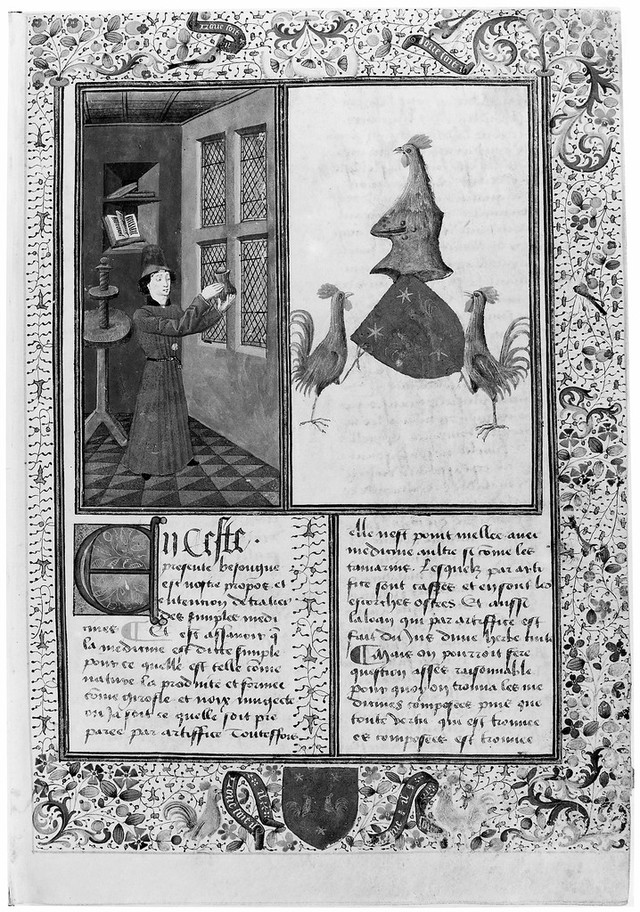 En Ceste
presente besongne
est nostre propos et
intention de traitier
des simples medi
cines Et est assavoir q̄
la medicine est ditte simple
pour ce quelle est telle cōme
nature la produite et formee
cōme girofle et noix muguecte
ou Ja soit ce quelle soit pre
paree par artiffice Touteffois
elle nest point meslee avec
medicine aultre si come les
tamarins Lesquelz par arti
fice sont casses et en sont les
escorches ostees Et aussi
laloen qui par artiffice est
fait du Jus dune herbe
Mais on pourroit fere
question asses raisonnable
pour quoy on trouva les me
dicines composees puis que
toute vertu qui est trouvee
es composees est trouvee